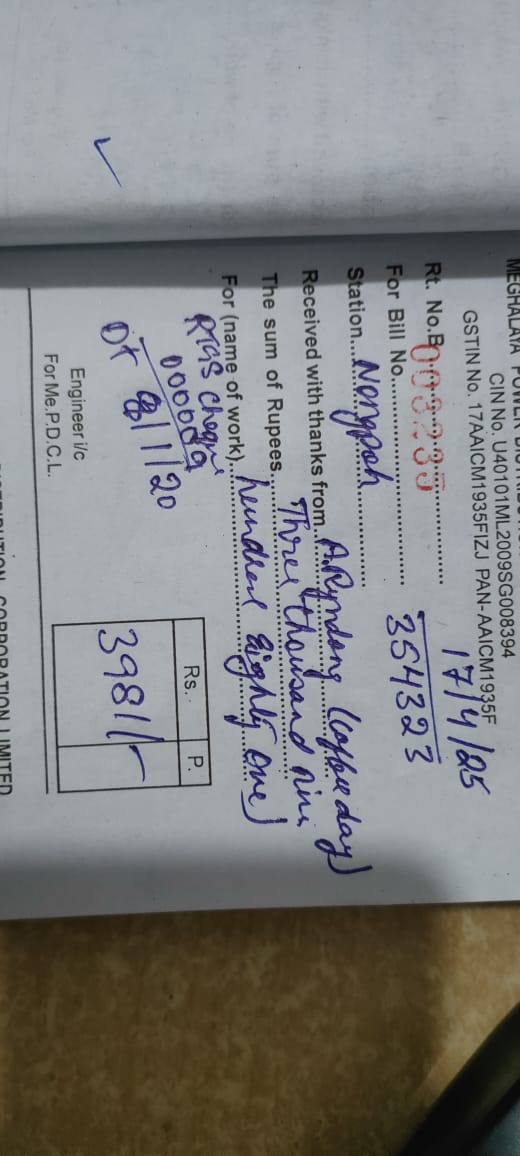 MEGHALAYA POWER
CIN No. U40101ML2009SG008394
GSTIN No. 17AAICM1935FIZJ PAN-AAICM1935F
Rt. No.B 093235 17/4/25
For Bill No. 354323
Station Nongpoh
Received with thanks from A. Ryndong (Coffee day)
The sum of Rupees Three thousand nine
For (name of work) hundred Eighty one)
RTGS Cheque
000089
Dt 8/1/20
Rs. P.
3981/-
Engineer i/c
For Me.P.D.C.L.
CORPORATION LIMITED